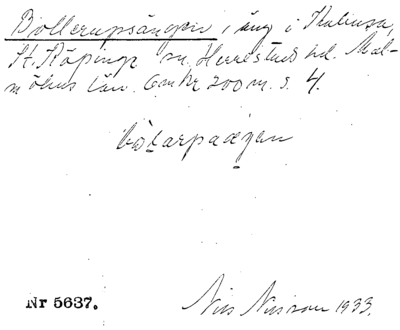 Bollerupsängen, äng i Kabusa,
St. Köpinge sn. Herrestad hd. Mal-
möhus län. Omkr 200 m. s. 4.
bo̱larpaæŋən
Nr 5637.
Nils Nilsson 1933.